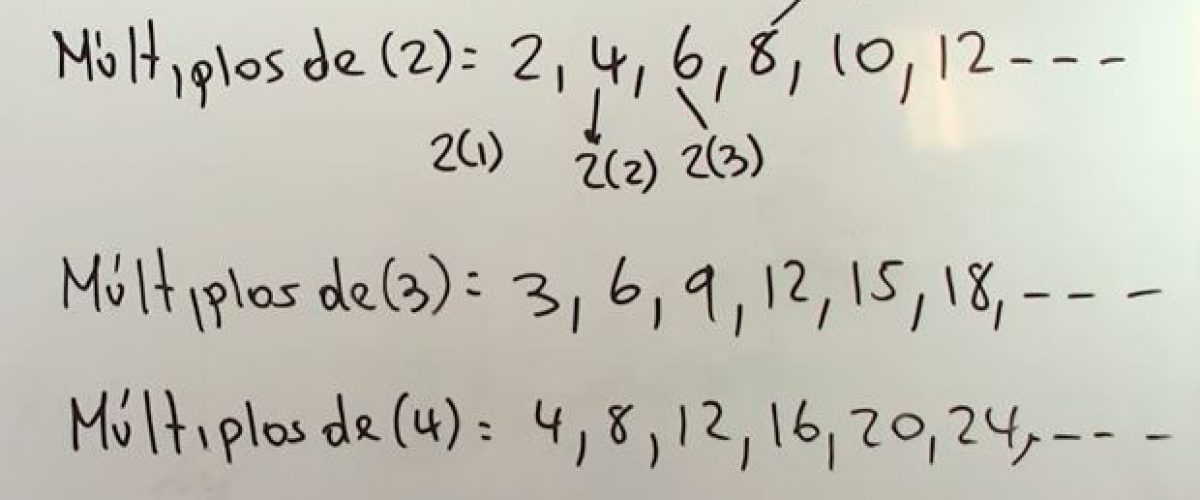 Múltiplos de (2) = 2, 4, 6, 8, 10, 12 - - -
2(1) 2(2) 2(3)
Múltiplos de (3) = 3, 6, 9, 12, 15, 18, - - -
Múltiplos de (4) = 4, 8, 12, 16, 20, 24, - - -